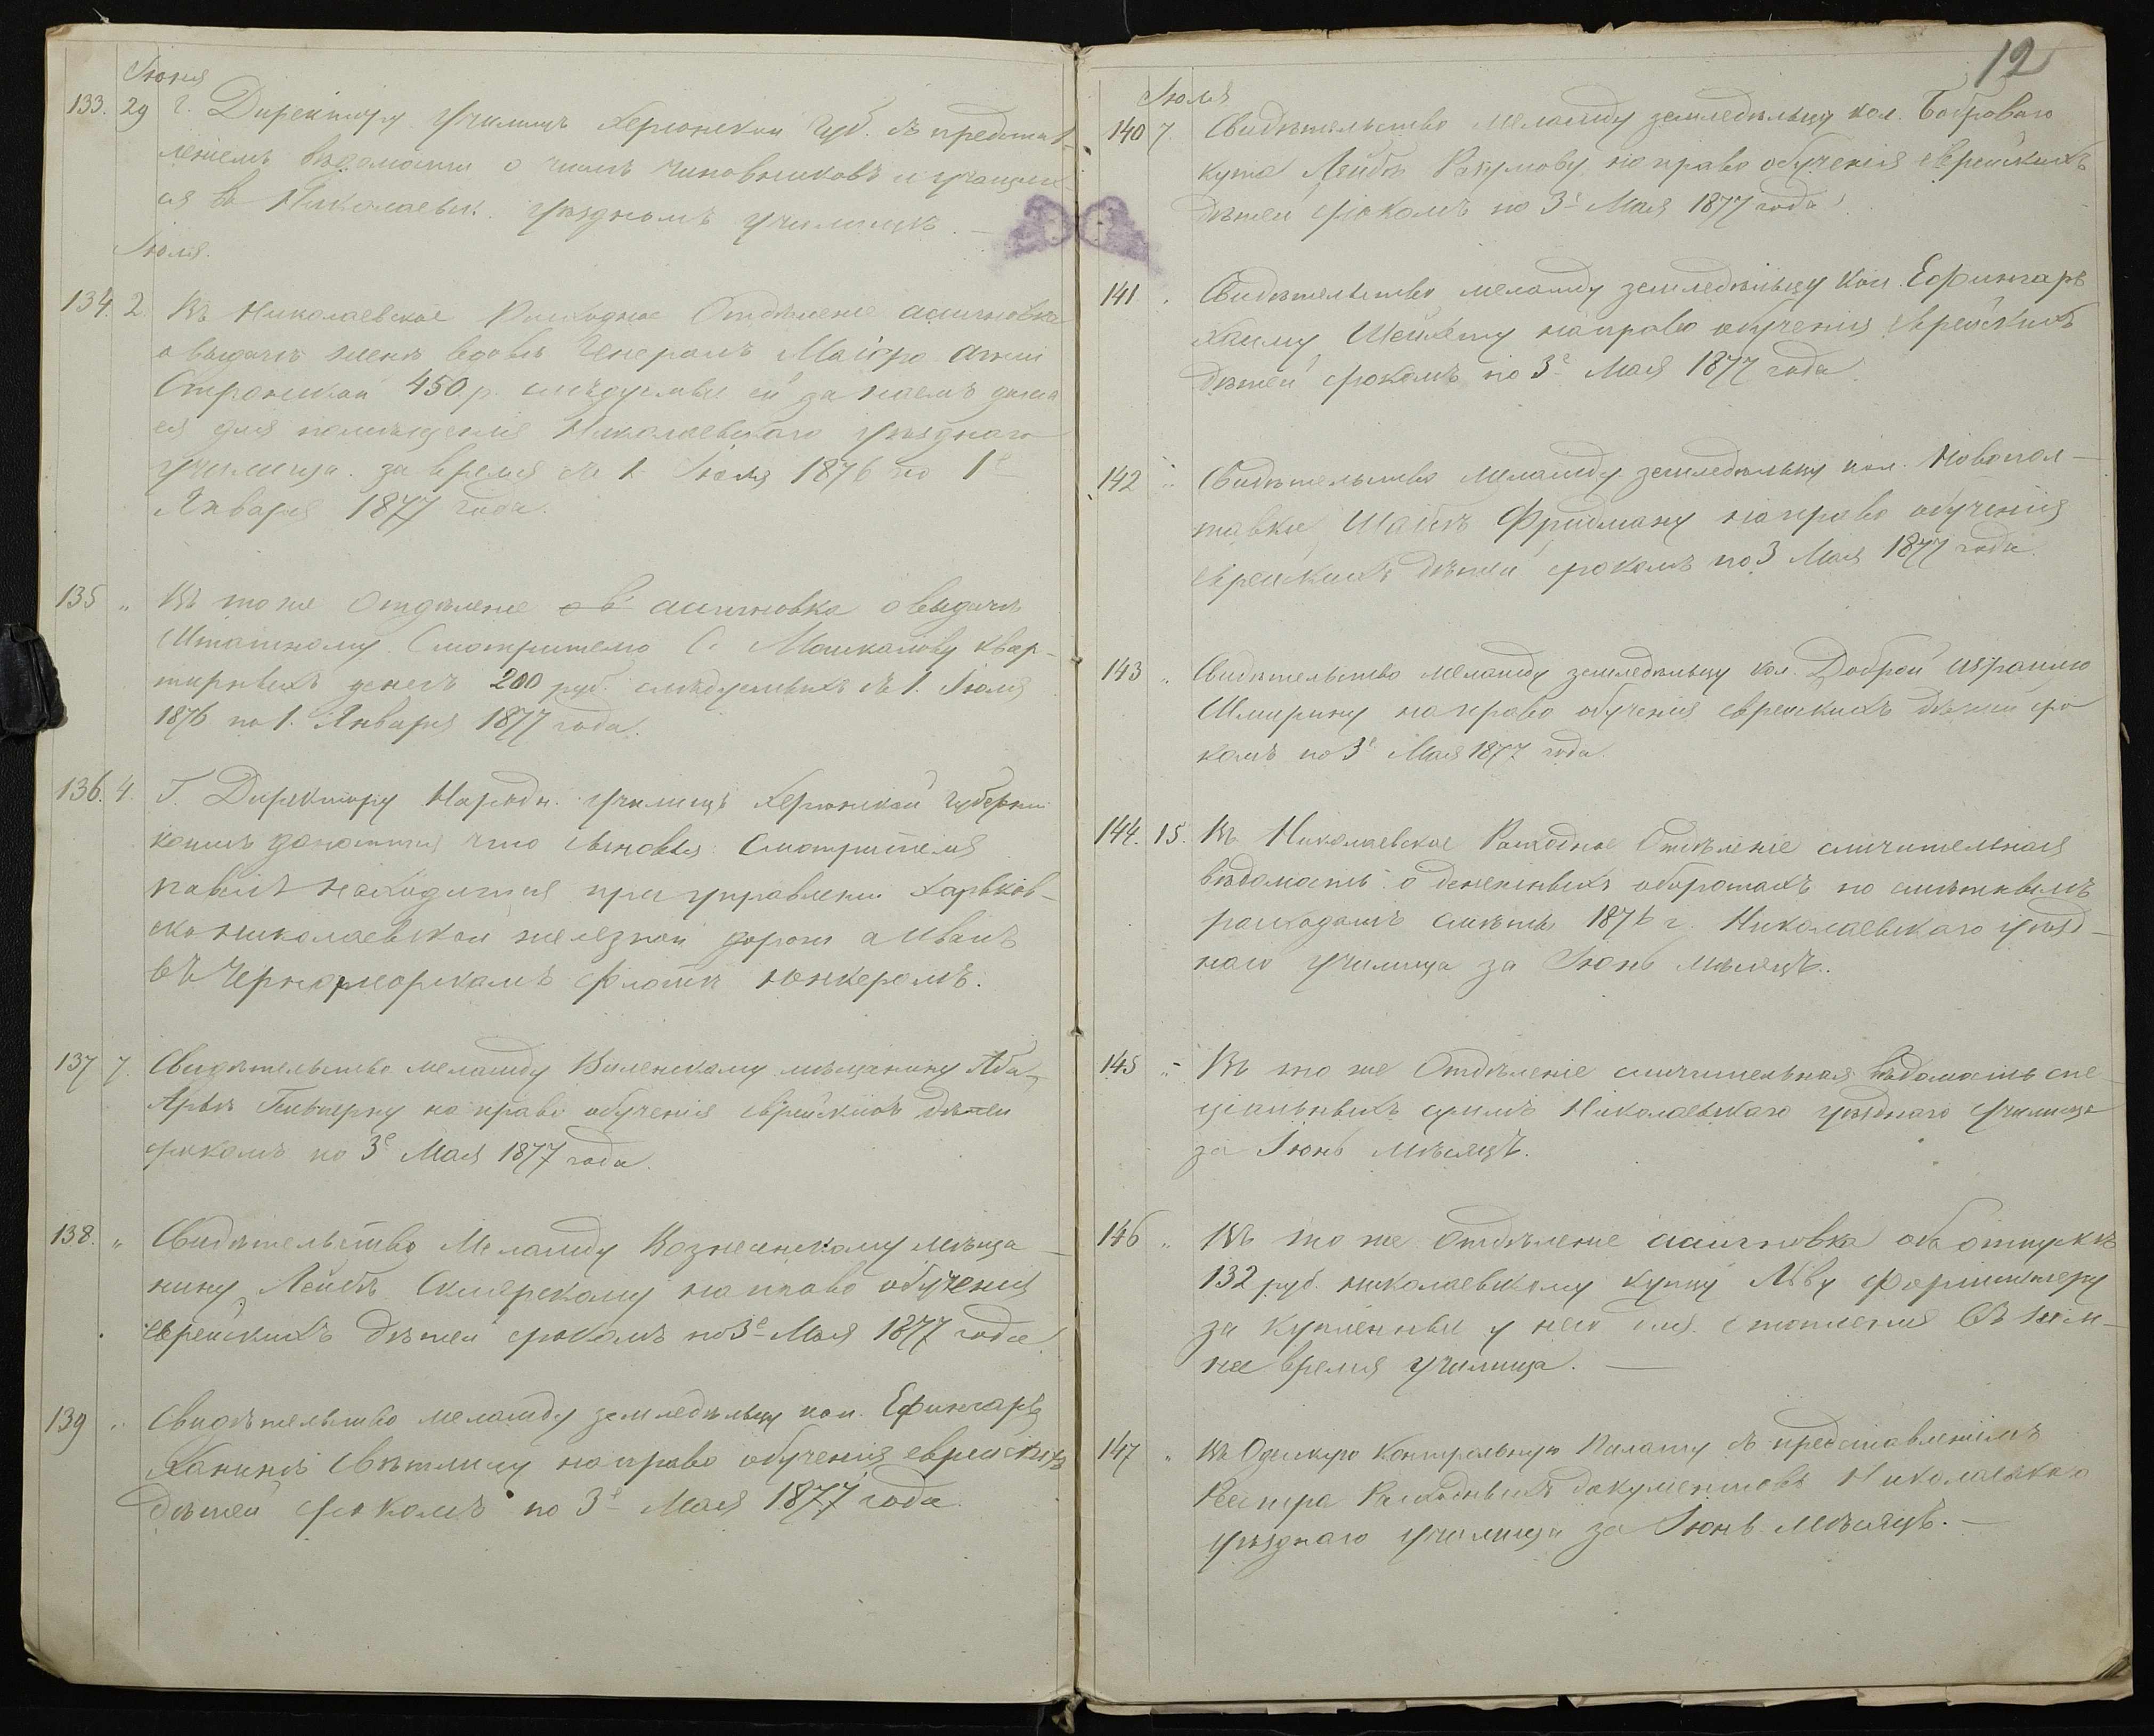 Іюня
133. 29 Г. Директору Училищъ Херсонской Губ. съ представ-
леніемъ вѣдомости о числѣ чиновниковъ и учащих-
ся въ Николаевск. уѣздномъ училищѣ. —
Іюля.
134. 2. Въ Николаевское Расходное Отдѣленіе ассигновка
о выдачѣ женѣ вдовѣ Генералъ Маіора Анніи
450 р. слѣдуемые ей за наемъ дома
ея для помѣщенія Николаевскаго уѣзднаго
училища. за время съ 1 Іюля 1876 по 1е
Января 1877 года.
135 „ Въ тоже Отдѣленіе ассигновка о выдачѣ
Штатному Смотрителю С. Машкалову квар-
тирныхъ денегъ 200 руб. слѣдуемыхъ съ 1. Іюля
1876 по 1. Января 1877 года.
136. 4. Г. Директору Народн. училищъ Херсонской Губерніи
коимъ доносится что сыновья Смотрителя
Павелъ находится при управленіи Харьков-
ско николаевской железной дороги а Иванъ
въ Черноморскомъ флотѣ юнкеромъ.
137 7. Свидѣтельство меламду Виленскому мѣщанину Аба-
Арье на право обученія Еврейскихъ дѣтей
срокомъ по 3е Мая 1877 года.
138. „ Свидѣтельство Меламду Вознесенскому мѣща-
нину Лейбѣ на право обученія
еврейскихъ дѣтей срокомъ по 3е Мая 1877 года.
139 „ Свидѣтельство меламду земледѣльцу кол. Ефингаръ
Свѣтлицу на право обученія еврейскихъ
дѣтей срокомъ по 3е Мая 1877 года.
12
Іюля
140 7. Свидѣтельство Меламду земледѣльцу кол. Боброваго
кута Лейбѣ на право обученія еврейскихъ
дѣтей срокомъ по 3е Мая 1877 года.
141 „ Свидѣтельство меламду земледѣльцу Кол. Ефингаръ
Хаиму на право обученія еврейскихъ
дѣтей срокомъ по 3е Мая 1877 года.
142 „ Свидѣтельство Меламду земледѣльцу кол. Новопол-
тавки Фридману на право обученія
еврейскихъ дѣтей срокомъ по 3 Мая 1877 года.
143 „ Свидѣтельство Меламду земледѣльцу кол. Доброй Израилю
Шмирину на право обученія еврейскихъ дѣтей сро
комъ по 3е Мая 1877 года.
144. 15. Въ Николаевское Расходное Отдѣленіе сличительная
вѣдомость о денежныхъ оборотахъ по смѣтнымъ
расходамъ смѣты 1876 г. Николаевскаго уѣзд-
наго училища за Іюнь мѣсяцъ.
145 „ Въ то же Отдѣленіе сличительная вѣдомость спе
ціальныхъ суммъ Николаевскаго уѣзднаго Училища
за Іюнь мѣсяцъ.
146 „ Въ то же Отдѣленіе ассигновка объ отпускѣ
132 руб. николаевскому купцу Льву
за купленные у него для отопленія въ зим-
нее время училища. —
147 „ Въ Одесскую Контрольную Палату съ представленіемъ
Реестра Расходныхъ документовъ Николаевскаго
уѣзднаго училища за Іюнь мѣсяцъ. —